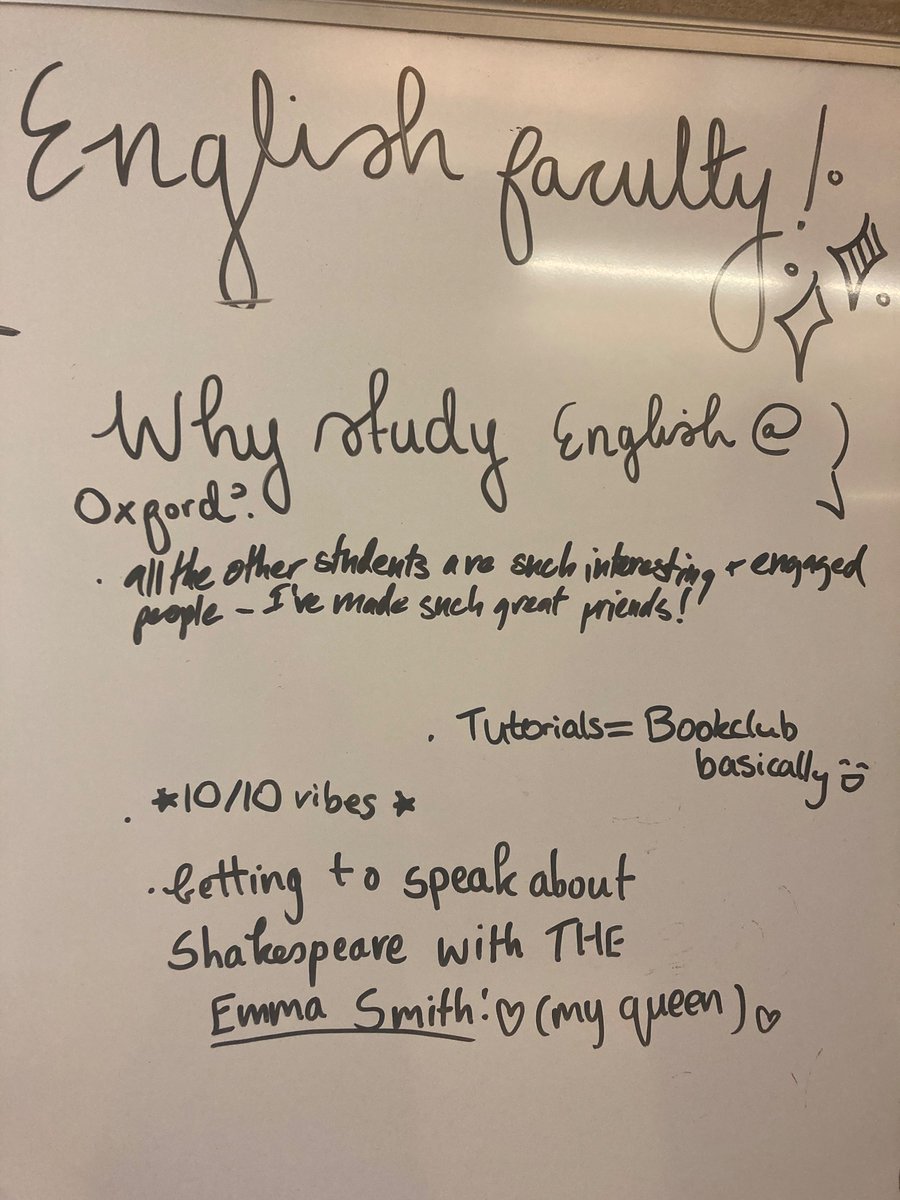 English faculty!
Why study English @
Oxford?
· all the other students are such interesting, + engaged
people – I've made such great friends!
· Tutorials = Bookclub
basically
· *10/10 vibes*
· Getting to speak about
Shakespeare with THE
Emma Smith! ♡ (my queen) ♡